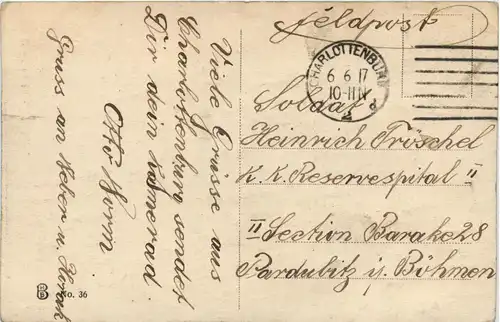 Feldpost
CHARLOTTENBURG
6 6 17
10-11 N
Soldat
Heinrich Tröschel
K. K. Reservespital II
II Section Barake 28
Pardubitz i. Böhmen
Viele Grüsse aus
Charlottenburg sendet
Dir dein Kamerad
Otto Worm
Gruss an Weber u.
No. 36